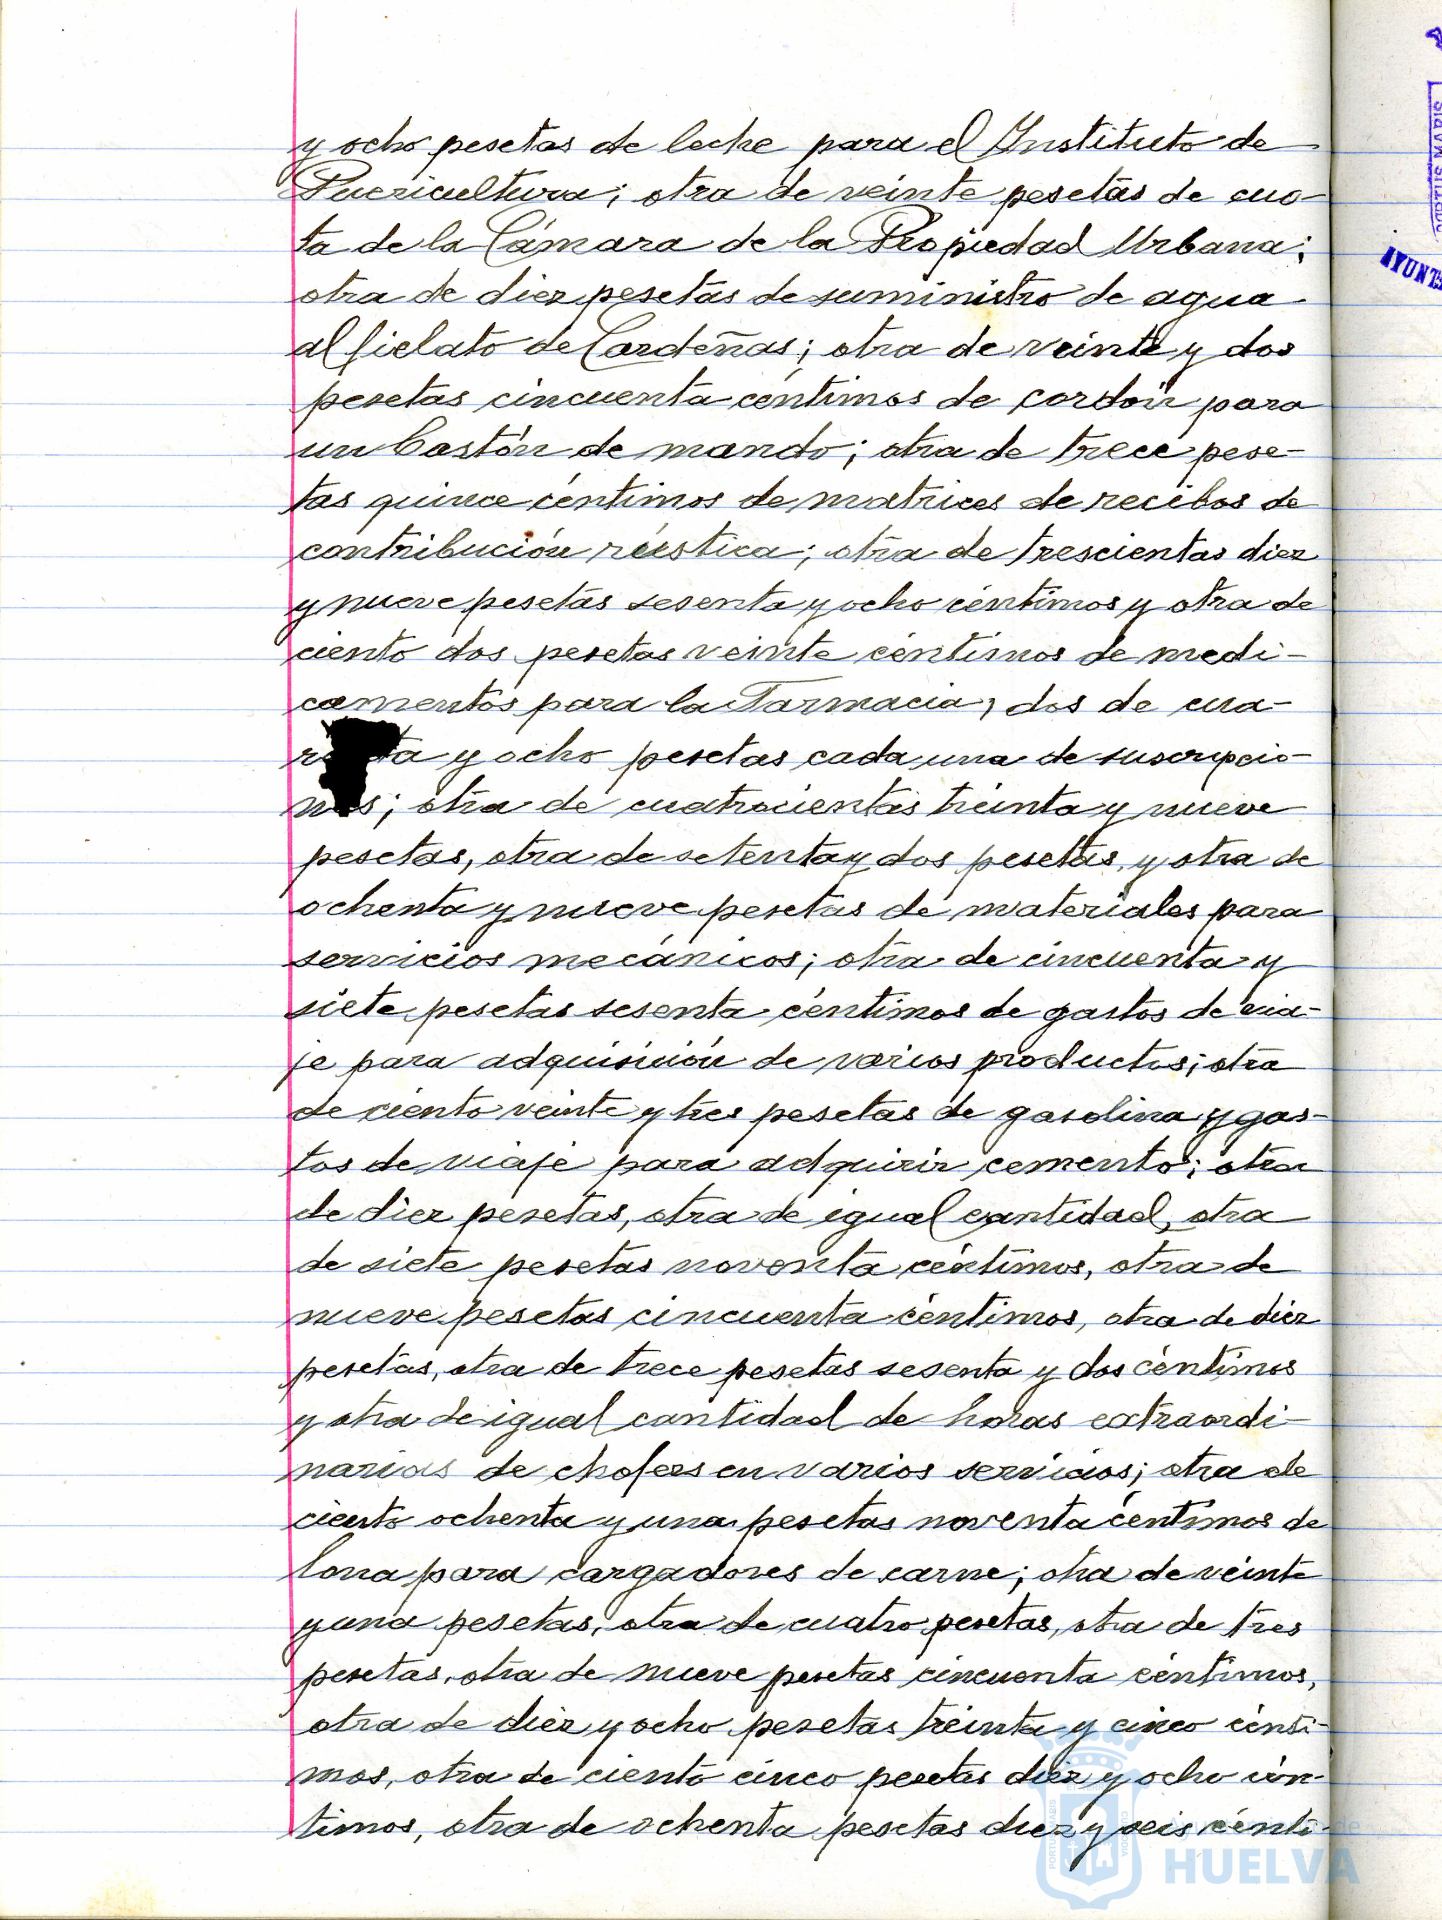 y ocho pesetas de leche para el Instituto de
Puericultura; otra de veinte pesetas de cuo-
ta de la Cámara de la Propiedad Urbana;
otra de diez pesetas de suministro de agua
al fielato de Cardeñas; otra de veinte y dos
pesetas cincuenta céntimos de cordón para
un Bastón de mando; otra de trece pese-
tas quince céntimos de matrices de recibos de
contribución rústica; otra de trescientas diez
y nueve pesetas sesenta y ocho céntimos y otra de
ciento dos pesetas veinte céntimos de medi-
camentos para la Farmacia; dos de cua-
ta y ocho pesetas cada una de suscripcio-
nes; otra de cuatrocientas treinta y nueve
pesetas, otra de setenta y dos pesetas, y otra de
ochenta y nueve pesetas de materiales para
servicios mecánicos; otra de cincuenta y
siete pesetas sesenta céntimos de gastos de via-
je para adquisición de varios productos; otra
de ciento veinte y tres pesetas de gasolina y gas-
tos de viaje para adquirir cemento; otra
de diez pesetas, otra de igual cantidad, otra
de siete pesetas noventa céntimos, otra de
nueve pesetas cincuenta céntimos, otra de diez
pesetas, otra de trece pesetas sesenta y dos céntimos
y otra de igual cantidad de horas extraordi-
narias de chofers en varios servicios; otra de
ciento ochenta y una pesetas noventa céntimos de
lona para cargadores de carne; otra de veinte
y una pesetas, otra de cuatro pesetas, otra de tres
pesetas, otra de nueve pesetas cincuenta céntimos,
otra de diez y ocho pesetas treinta y cinco cénti-
mos, otra de ciento cinco pesetas diez y ocho cén-
timos, otra de ochenta pesetas diez y seis cénti-
HUELVA
PORTUS MARIS
AYUNT